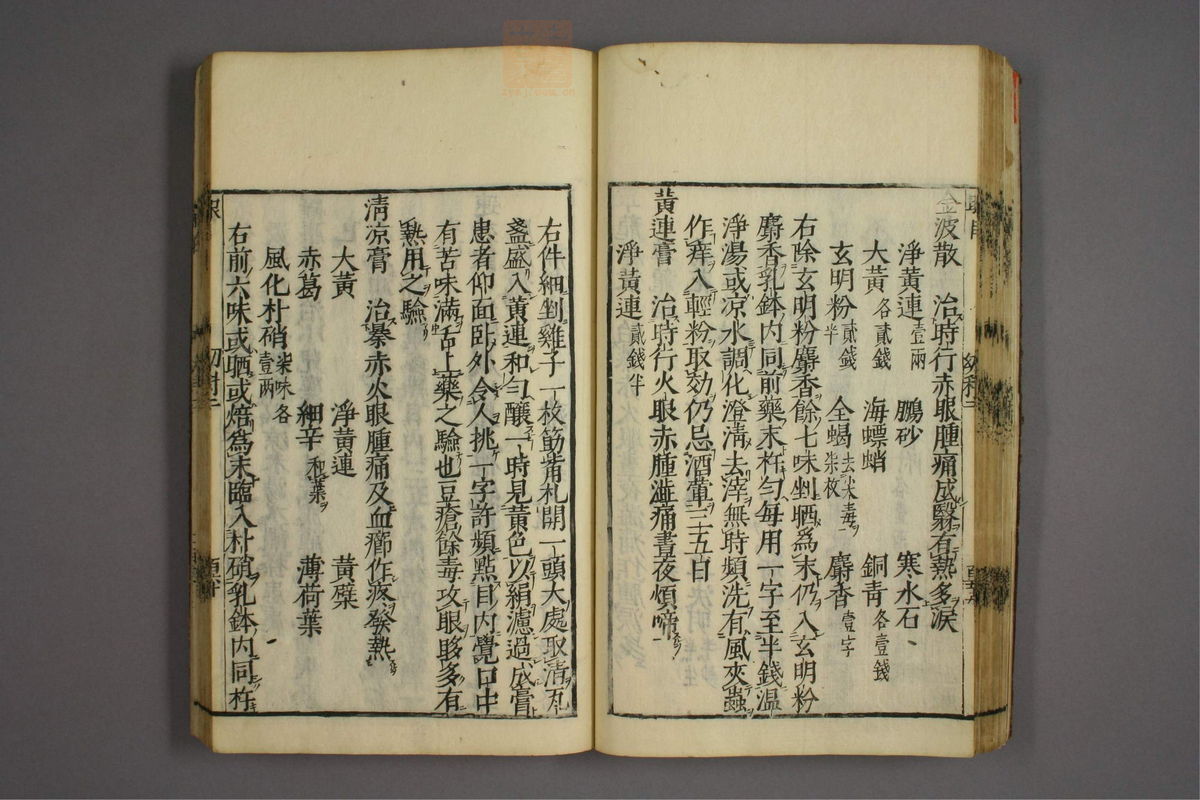 金波散　治時行赤眼腫痛成翳有熱多淚
淨黃連壹兩　鵬砂　寒水石
大黃各貳錢　海螵蛸　銅青各壹錢
玄明粉貳錢半　全蝎去尖毒二柒枚　麝香壹字
右除玄明粉麝香餘七味剉晒為末仍入玄明粉
麝香乳鉢內同前藥末杵勻每用一字至半錢溫
淨湯或凉水調化澄淸去滓無時頻洗有風夾蟲
作痒入輕粉取効仍忌酒葷三五日
黃連膏　治時行火眼赤腫澁痛晝夜煩啼
淨黃連貳錢半
右件細剉雞子一枚筯觜札開一頭大處取淸瓦
盞盛入黃連和勻釀一時見黃色以絹濾過成膏
患者仰面卧外令人挑一字許頻點目內覺口中
有苦味滿舌上藥之驗也豆瘡餘毒攻眼眵多有
熱用之驗
淸凉膏　治暴赤火眼腫痛及血癤作疼發熱
大黃　淨黃連　黃檗
赤葛　細辛和葉　薄荷葉
風化朴硝柒味各壹兩
右前六味或晒或焙為末臨入朴硝乳鉢內同杵